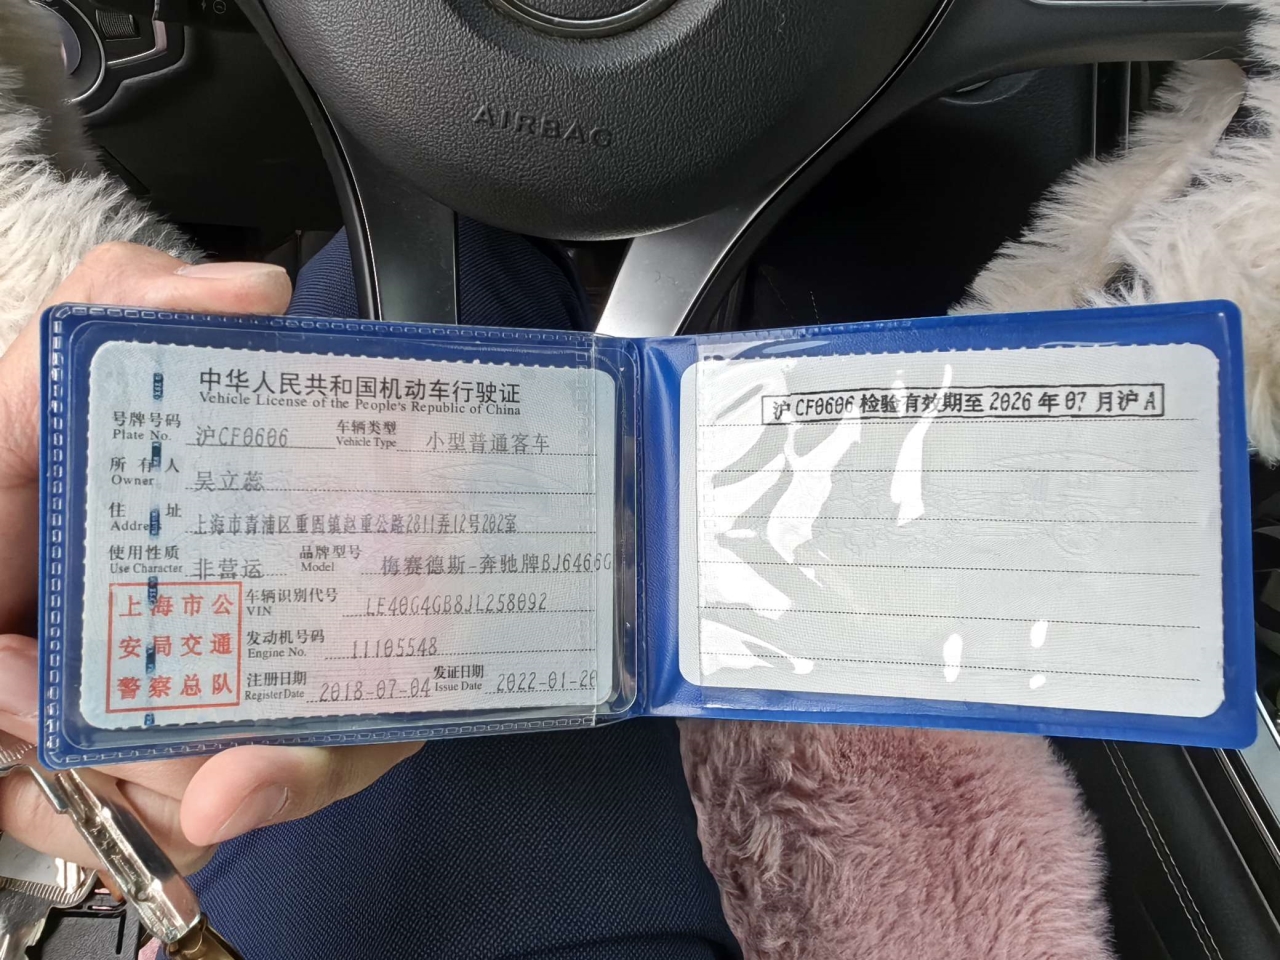 AIRBAG
中华人民共和国机动车行驶证
Vehicle License of the People's Republic of China
号牌号码 沪CF0606 车辆类型 小型普通客车
Plate No. Vehicle Type
所有人 吴立蕊
Owner
住址 上海市青浦区重固镇赵重公路2811弄12号202室
Address
使用性质 非营运 品牌型号 梅赛德斯-奔驰牌BJ6466G
Use Character Model
车辆识别代号 LE40G4GB8JL258092
VIN
发动机号码 11105548
Engine No.
注册日期 2018-07-04 发证日期 2022-01-20
Register Date Issue Date
上海市公
安局交通
警察总队
沪CF0606 检验有效期至 2026 年 07 月沪 A